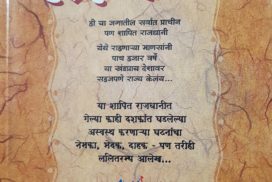 ही या जगातील सर्वात प्राचीन
पण शापित राजधानी
येथे राहूनच माणसांनी
पाच हजार वर्षे
या खंडप्राय देशावर
सहजपणे राज्य केलंय...
या शापित राजधानीत
गेल्या काही दशकांत घडलेल्या
अस्वस्थ करणाऱ्या घटनांचा
नेमका, भेदक, दाहक - पण तरीही
ललितरम्य आलेख...